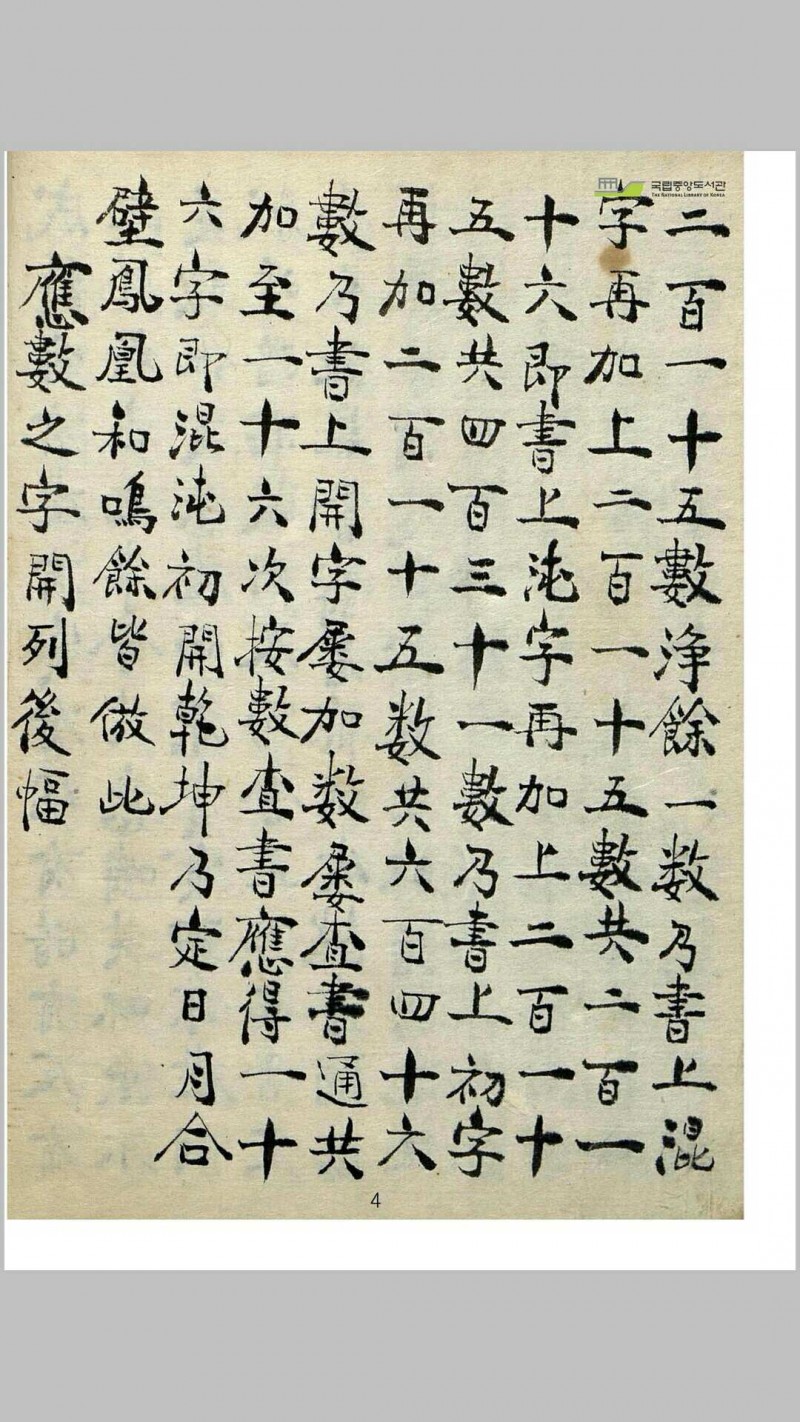 국립중앙도서관
THE NATIONAL LIBRARY OF KOREA
二百一十五數浄餘一数乃書上混
字再加上二百一十五數共二百一
十六即書上沌字再加上二百一十
五數共四百三十一數乃書上初字
再加二百一十五数共六百四十六
數乃書上開字屡加数屡查書通共
加至一十六次按數查書應得一十
六字即混沌初開乾坤乃定日月合
壁鳳凰和鳴餘皆倣此
應數之字開列後幅
4